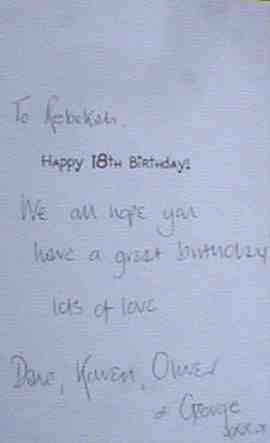 To Rebekah.
HAPPY 18TH BIRTHDAY!
We all hope you
have a great birthday
lots of love
Dave, Karen, Oliver
+ George
xxxx